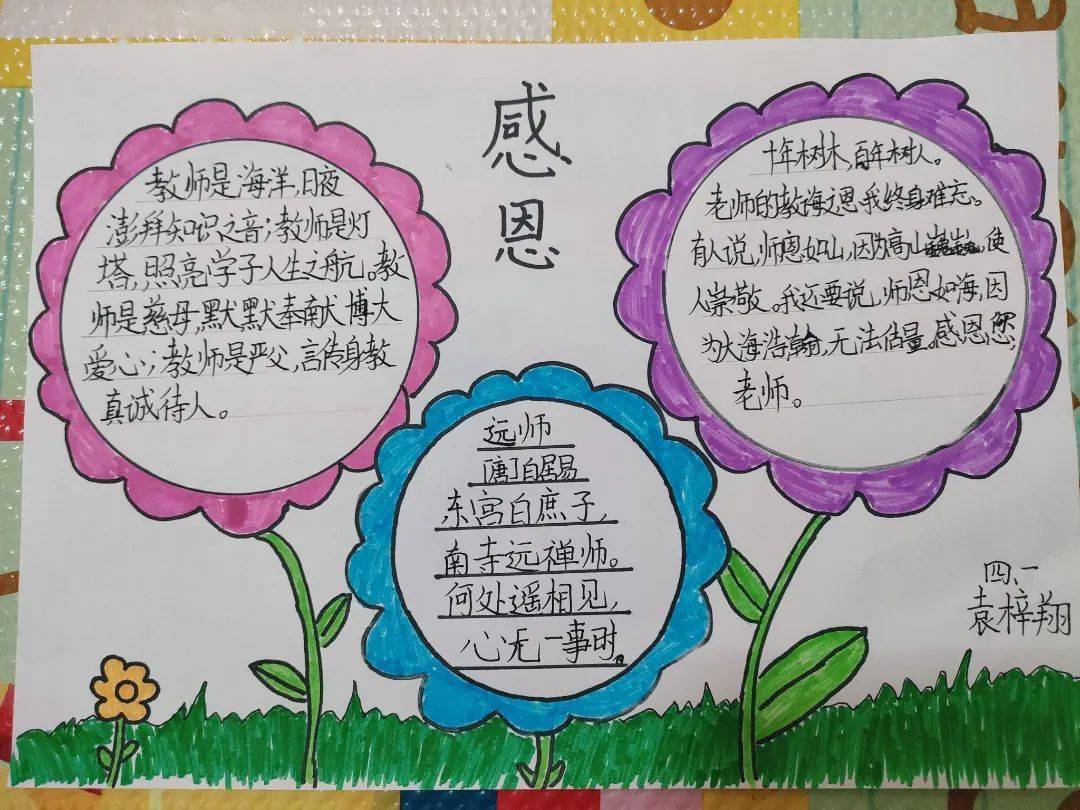 感恩
教师是海洋,日夜
澎拜知识之音;教师是灯
塔,照亮学子人生之航。教
师是慈母,默默奉献博大
爱心;教师是严父,言传身教
真诚待人。
十年树木,百年树人。
老师的教海之恩,我终身难忘。
有人说,师恩如山,因为高山巍巍,使
人崇敬。我还要说,师恩如海,因
为大海浩瀚,无法估量。感恩您
老师。
远师
[唐]白居易
东宫白庶子,
南寺远禅师。
何处遥相见,
心无一事时。
四、一
袁梓翔